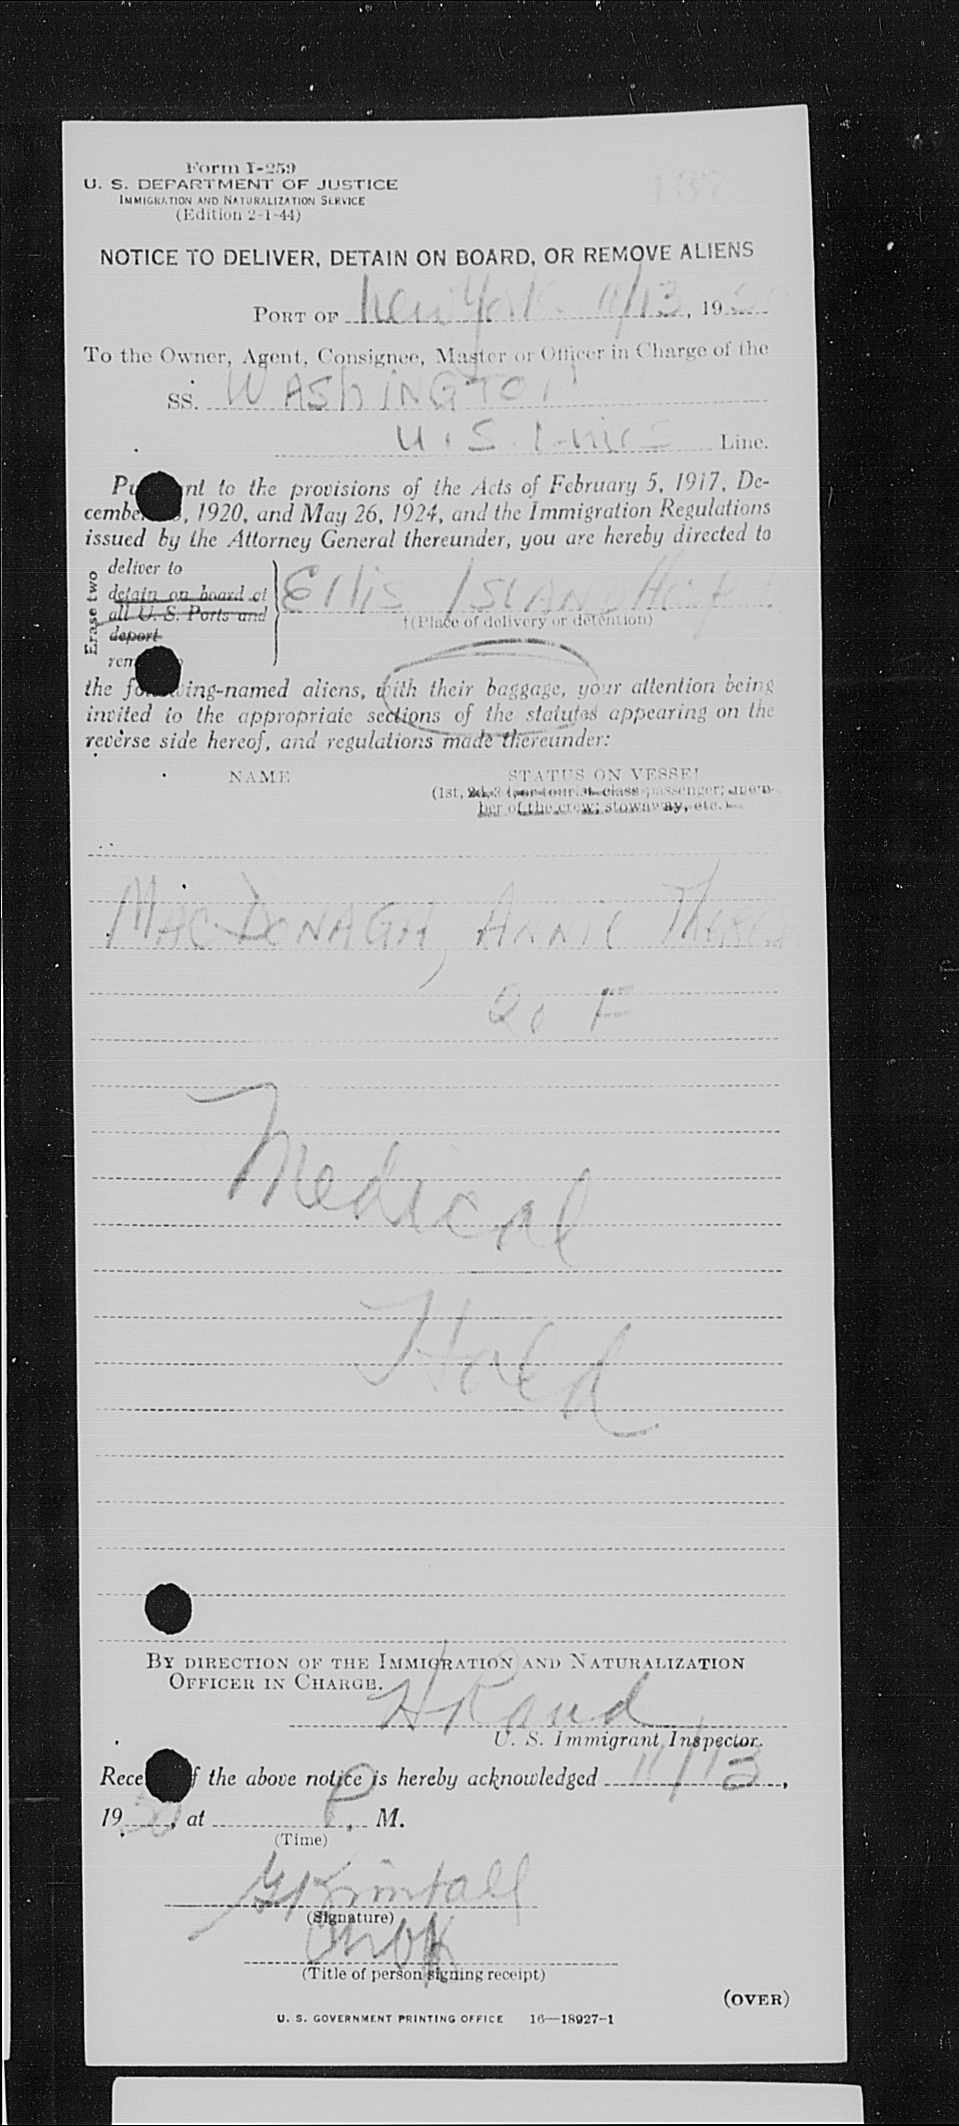 Form I-259
U. S. DEPARTMENT OF JUSTICE
IMMIGRATION AND NATURALIZATION SERVICE
(Edition 2-1-44)
NOTICE TO DELIVER, DETAIN ON BOARD, OR REMOVE ALIENS
PORT OF New York 11/13, 19
To the Owner, Agent, Consignee, Master or Officer in Charge of the
SS. WASHINGTON
U.S. Lines Line.
Pu nt to the provisions of the Acts of February 5, 1917, De-
cembe , 1920, and May 26, 1924, and the Immigration Regulations
issued by the Attorney General thereunder, you are hereby directed to
Erase two
deliver to
detain on board at
all U. S. Ports and
deport
rem
Ellis ISLAND Hosp
†(Place of delivery or detention)
the fo ing-named aliens, with their baggage, your attention being
invited to the appropriate sections of the statutes appearing on the
reverse side hereof, and regulations made thereunder:
NAME STATUS ON VESSEL
(1st, 2d, 3d, or tourist-class passenger; mem-
ber of the crew; stowaway, etc.)
MACDONAGH, ANNIE
F
Medical
Held
BY DIRECTION OF THE IMMIGRATION AND NATURALIZATION
OFFICER IN CHARGE.
H Rand
U. S. Immigrant Inspector.
Rece f the above notice is hereby acknowledged 11/13,
1950, at P. M.
(Time)
(Signature)
(Title of person signing receipt)
(OVER)
U. S. GOVERNMENT PRINTING OFFICE 16—18927-1